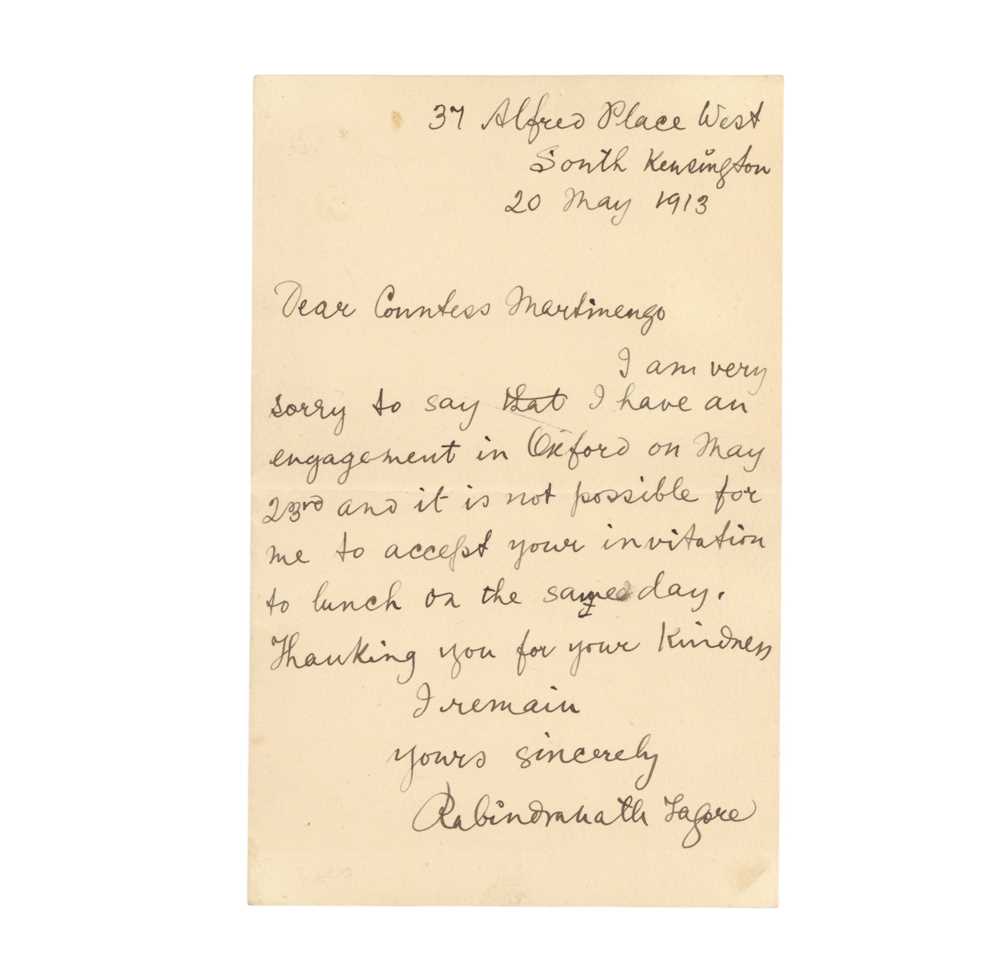 37 Alfred Place West
South Kensington
20 May 1913
Dear Countess Martinengo
I am very
sorry to say that I have an
engagement in Oxford on May
23rd and it is not possible for
me to accept your invitation
to lunch on the same day.
Thanking you for your kindness
I remain
yours sincerely
Rabindranath Tagore